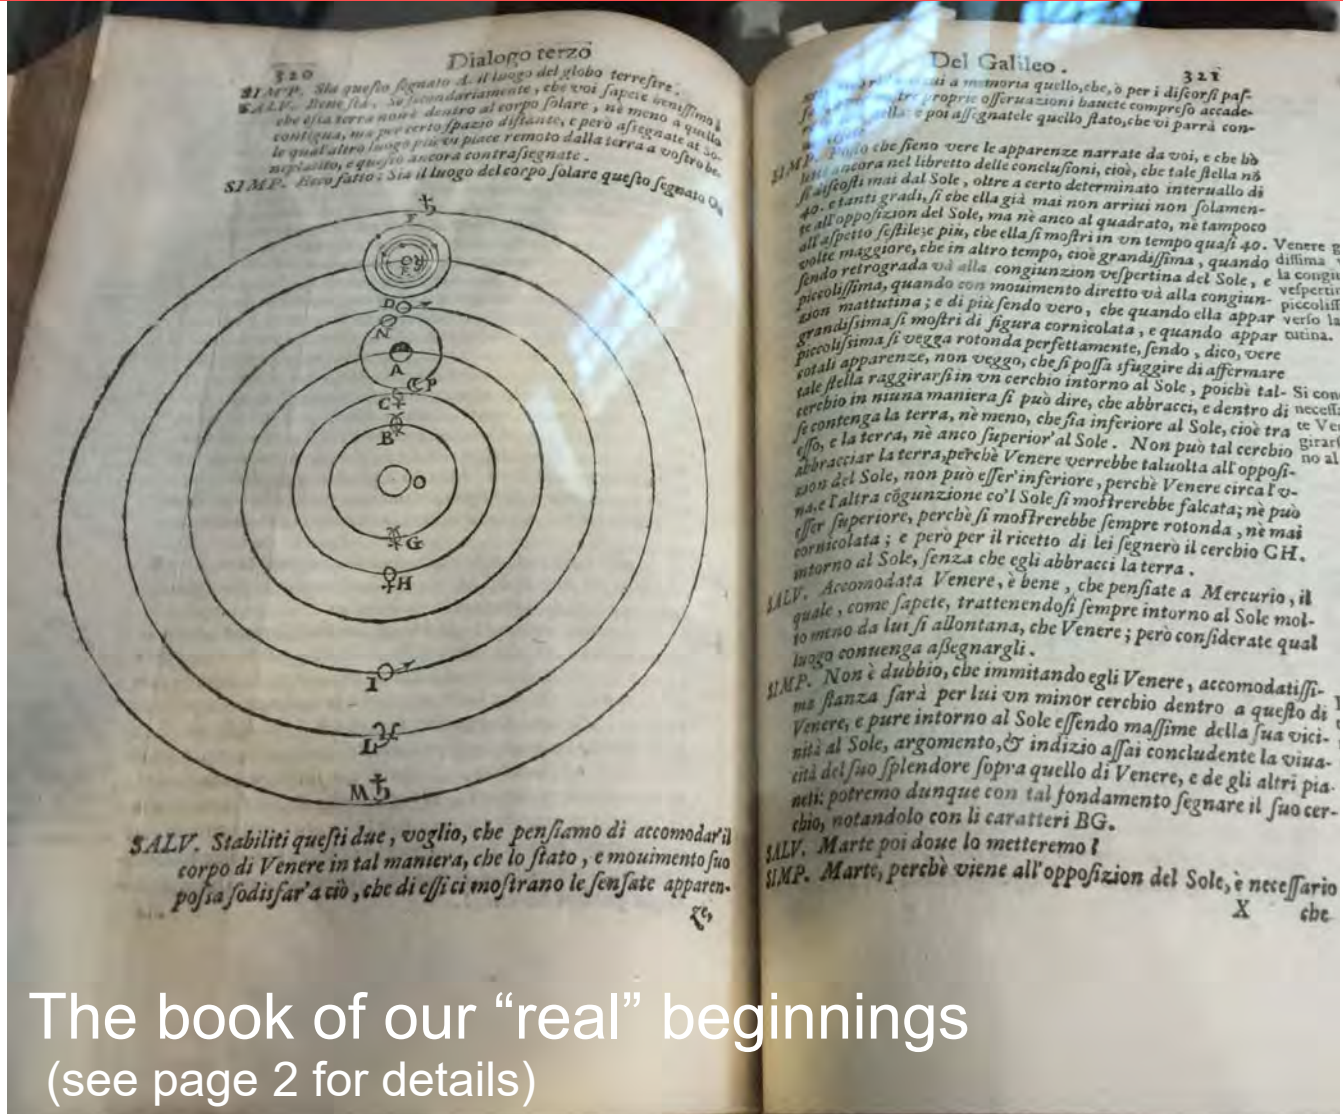 320
Dialogo terzo
SIMP. Sia questo segnato A. il luogo del globo terrestre.
SALV. Bene stà. So secondariamente, che voi sapete benissimo,
che essa terra non è dentro al corpo solare, nè meno a quello
contigua, ma per certo spazio distante, e però assegnate al So-
le qual altro luogo più vi piace remoto dalla terra a vostro be-
neplacito, e questo ancora contrassegnate.
SIMP. Ecco fatto: Sia il luogo del corpo solare questo segnato O.
♄
F
D
N
A
P
C
B
O
G
♀H
I
L♃
M♄
SALV. Stabiliti questi due, voglio, che pensiamo di accomodar'il
corpo di Venere in tal maniera, che lo stato, e mouimento suo
possa sodisfar'a ciò, che di essi ci mostrano le sensate apparen-
ze,
Del Galileo.
321
a memoria quello, che, ò per i discorsi pas-
proprie osseruazioni hauete compreso accade-
e poi assegnatele quello stato, che vi parrà con-
SIMP. che sieno vere le apparenze narrate da voi, e che hò
ancora nel libretto delle conclusioni, cioè, che tale stella nõ
si discosti mai dal Sole, oltre a certo determinato interuallo di
40. e tanti gradi, si che ella già mai non arriui non solamen-
te all'opposizion del Sole, ma nè anco al quadrato, nè tampoco
all'aspetto sestile; e più, che ella si mostri in vn tempo quasi 40.
volte maggiore, che in altro tempo, cioè grandissima, quando
sendo retrograda và alla congiunzion vespertina del Sole, e
piccolissima, quando con mouimento diretto và alla congiun-
zion mattutina; e di più sendo vero, che quando ella appar
grandissima si mostri di figura cornicolata, e quando appar
piccolissima si vegga rotonda perfettamente, sendo, dico, vere
cotali apparenze, non veggo, che si possa sfuggire di affermare
tale stella raggirarsi in vn cerchio intorno al Sole, poichè tal
cerchio in niuna maniera si può dire, che abbracci, e dentro di
se contenga la terra, nè meno, che sia inferiore al Sole, cioè tra
esso, e la terra, nè anco superior'al Sole. Non può tal cerchio
abbracciar la terra, perchè Venere verrebbe taluolta all'opposi-
zion del Sole, non può esser'inferiore, perchè Venere circa l'v-
na, e l'altra cõgunzione co'l Sole si mostrerebbe falcata; nè può
esser superiore, perchè si mostrerebbe sempre rotonda, nè mai
cornicolata; e però per il ricetto di lei segnerò il cerchio CH.
intorno al Sole, senza che egli abbracci la terra.
SALV. Accomodata Venere, è bene, che pensiate a Mercurio, il
quale, come sapete, trattenendosi sempre intorno al Sole mol-
to meno da lui si allontana, che Venere; però considerate qual
luogo conuenga assegnargli.
SIMP. Non è dubbio, che immitando egli Venere, accomodatissi-
ma stanza sarà per lui vn minor cerchio dentro a questo di
Venere, e pure intorno al Sole essendo massime della sua vici-
nità al Sole, argomento, & indizio assai concludente la viua-
cità del suo splendore sopra quello di Venere, e de gli altri pia-
neti: potremo dunque con tal fondamento segnare il suo cer-
chio, notandolo con li caratteri BG.
SALV. Marte poi doue lo metteremo?
SIMP. Marte, perchè viene all'opposizion del Sole, è necessario
X che
Venere
dissima
la congiu
vespertin
piccoliss
verso la
tutina.
Si con
necess
te Ve
girars
no al
The book of our “real” beginnings
(see page 2 for details)